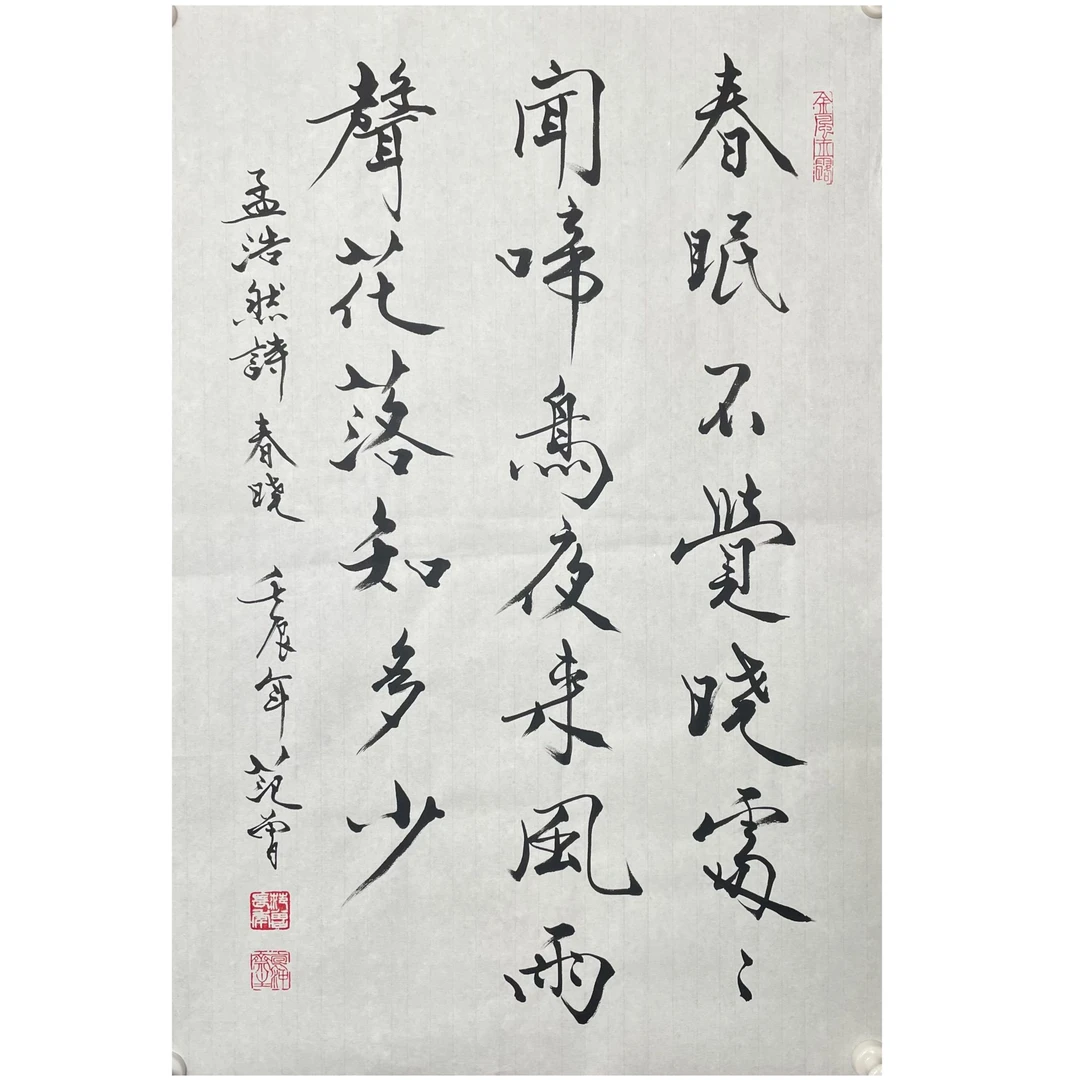 金風玉露
春眠不覺曉處〻
聞啼鳥夜来風雨
聲花落知多少
孟浩然詩 春曉 壬辰年 范曾